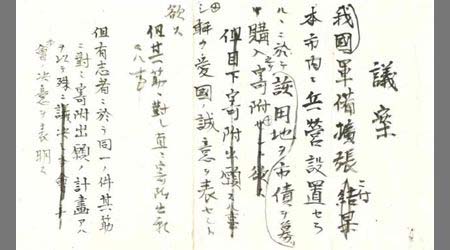 議案
我國軍備擴張結果
本市内ニ兵營設置セラ
ルヽニ於テ該田地ヲ市債ヲ募
購入シ寄附セント欲ス
但目下寄附出願
シ愛國誠意ヲ表セント
欲ス
但其筋ニ對シ直ニ寄附出願
但有志者ニ於テ同一ノ件其筋
ニ對シ寄附出願ノ計畫アル
ヲ以テ殊ニ議決シ
會ノ決意ヲ表明ス